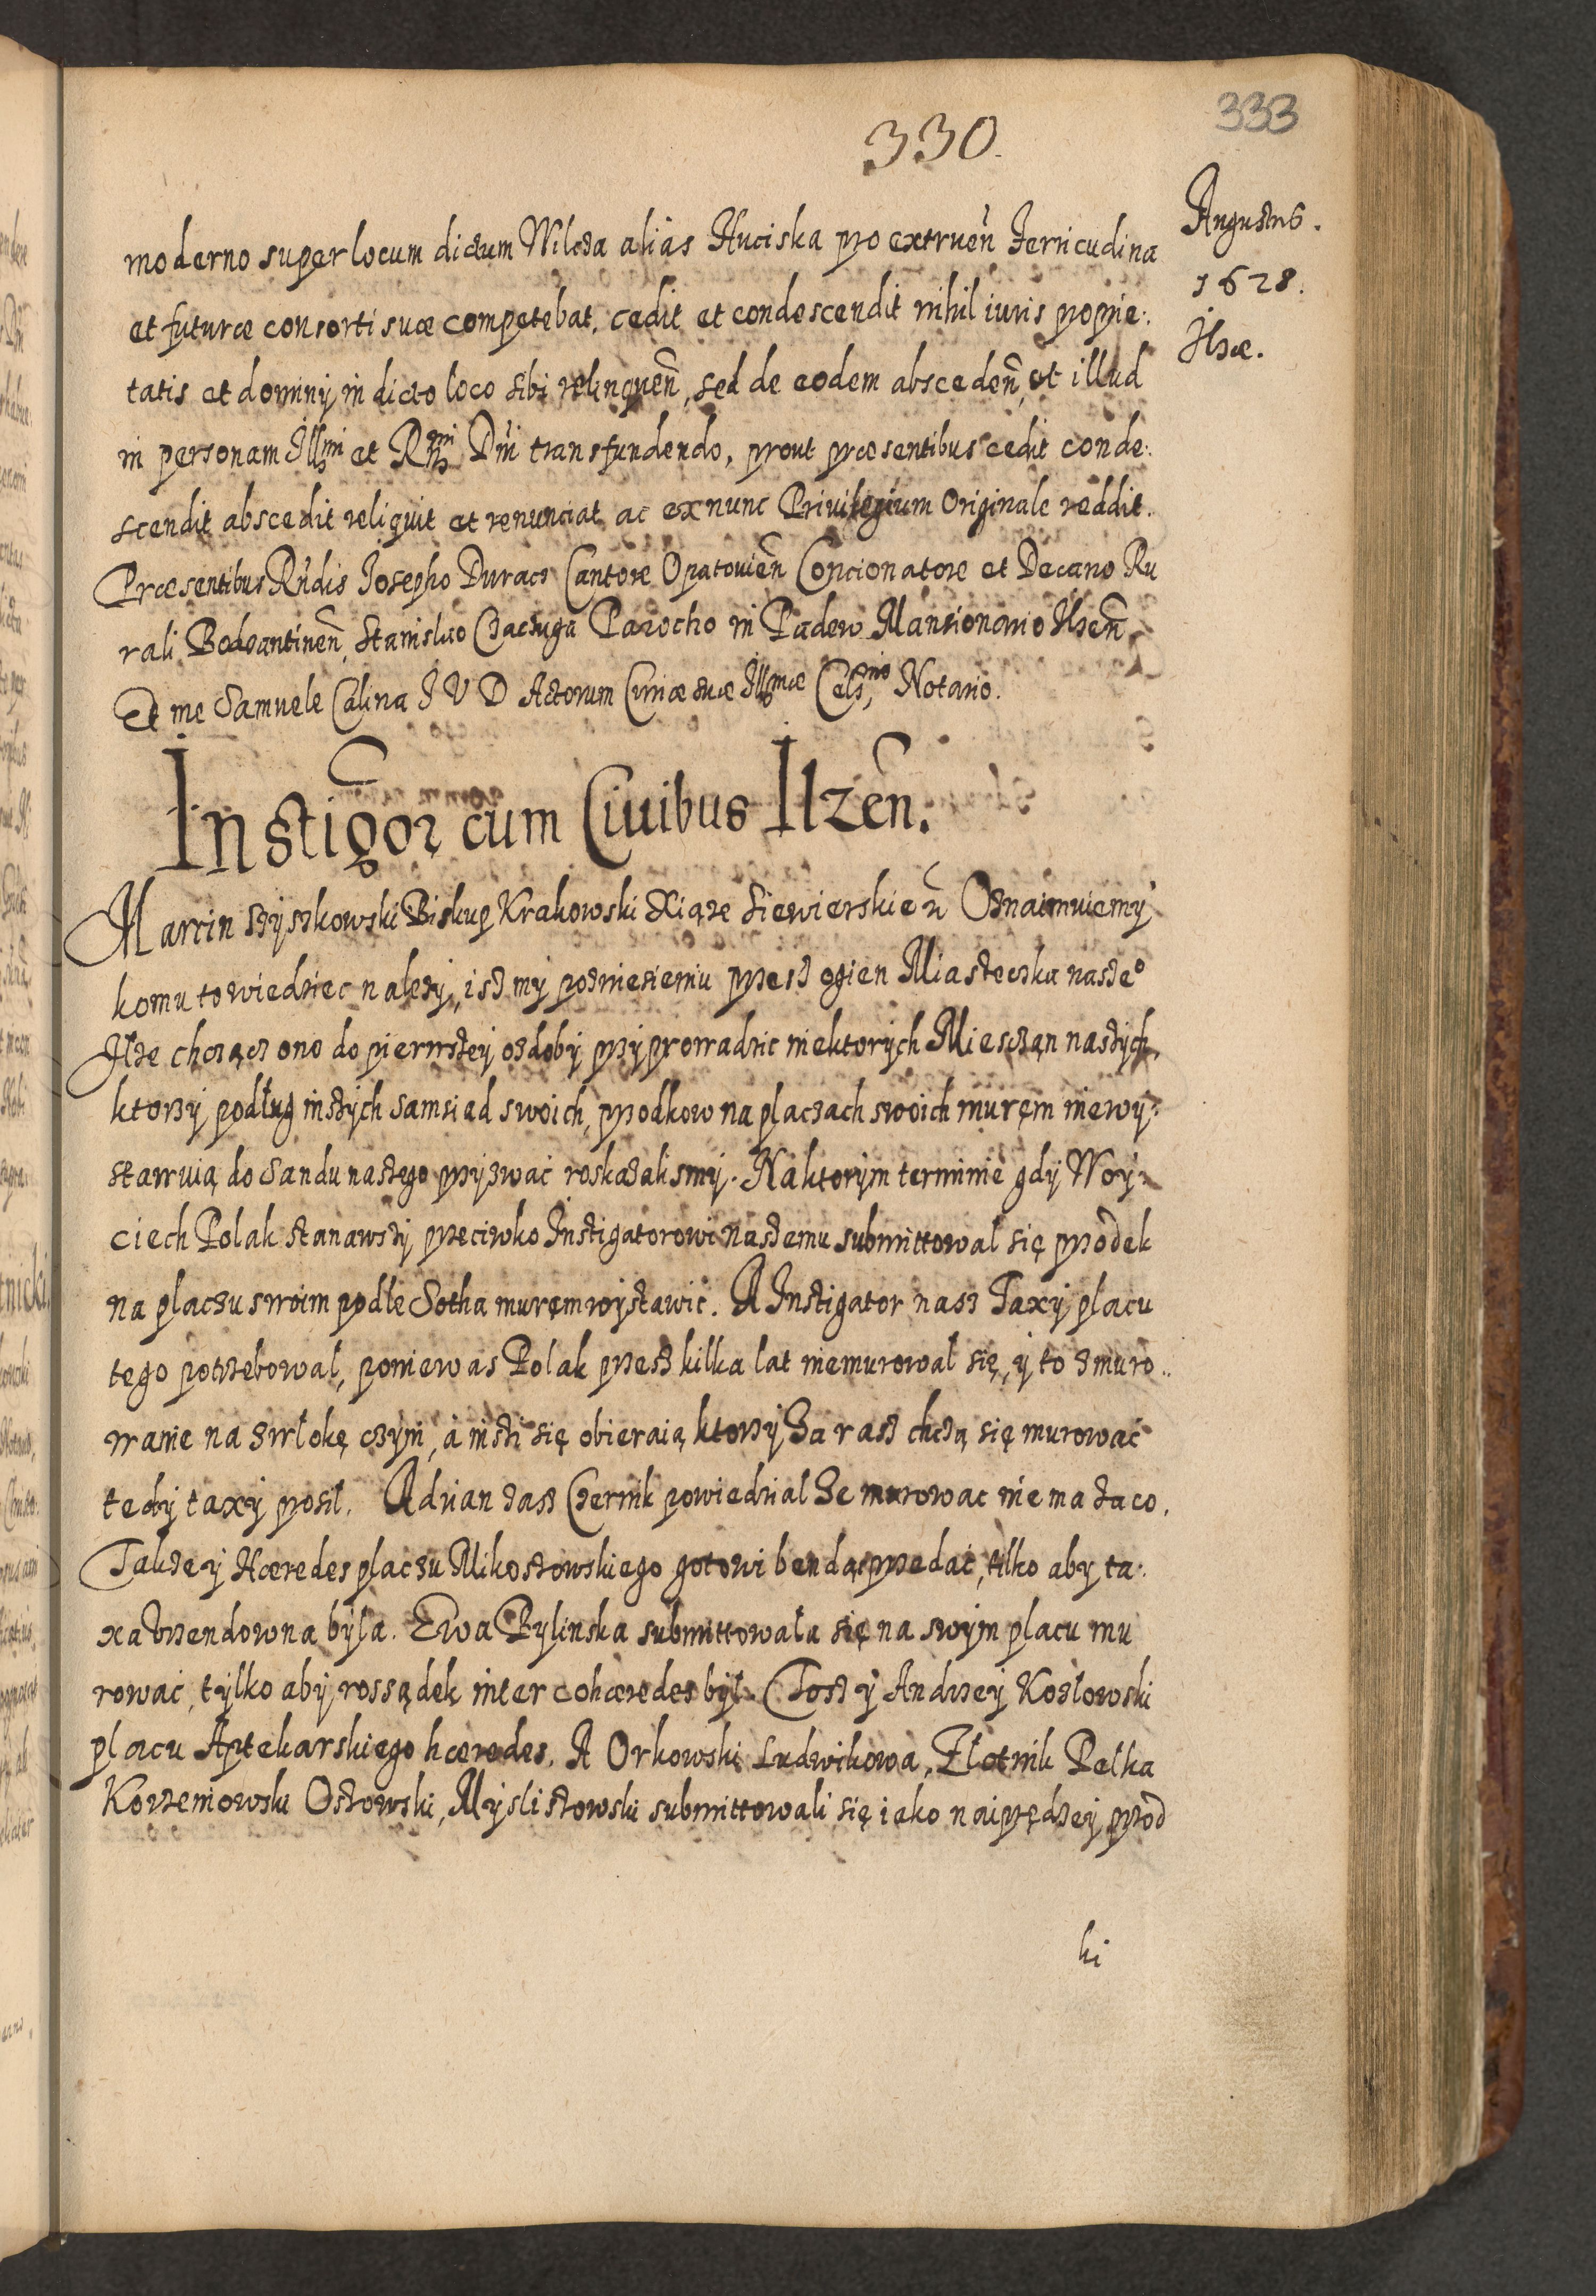 333
330.
Augustus.
1628.
Ilzæ.
moderno super locum dictum Wilcza alias Huciska pro extruen̄ ferricudina
et futuræ consorti suæ competebat, cedit et condescendit nihil iuris proprie:
tatis et dominÿ in dicto loco sibi relinquen̄, sed de eodem absceden̄, et illud
in personam Illmi et Rmi Dni transfundendo, prout præsentibus cedit conde:
scendit abscedit reliquit et renunciat ac ex nunc Privilegium Originale reddit.
Præsentibus Rndis Josepho Duracz Cantore Opatovien̄ Concionatore et Decano Ru
rali Bodzantinen̄, Stanislao Czaczuga Parocho in Padew Mansionario Ilzen̄
Et me Samuele Calina J V D Actorum Curiæ suæ Illmæ Cels,nis Notario.
Instigor cum Civibus Ilzen̄.
Marcin Szÿszkowski Biskup Krakowski Xiąze Siewierskie Oznaimuiemÿ
komu to wiedziec nalezÿ, isz mÿ po zniesieniu przesz ogien Miasteczka nasze°
Ilze chcząc ono do pierwszeÿ ozdobÿ przÿprowadzic niektorÿch Miesczan naszÿch,
ktorzÿ podług inszÿch samsiad swoich, przodkow na placzach swoich murem niewÿ:
stawuią do Sandu naszego przÿzwać roskazalismÿ. Na ktorÿm terminie gdÿ Woÿ:
ciech Polak stanawszÿ przeciwko Instigatorowi naszemu submittowal się przodek
na placzu swoim podle Sotha murem wÿstawić. A Instigator nasz Taxÿ placu
tego potrzebowal, poniewas Polak przesz kilka lat niemurowal się, ÿ to zmuro..
wanie na zwlokę czÿni, á inszi się obieraią ktorzÿ Zarasz chczą się murować
tedÿ taxÿ prosil. Adrian zasz Czernik powiedzial Ze murowac nie ma za co.
Takze ÿ Hæredes placzu Mikoszowskiego gotowi bendą przedać, tilko aby ta:
xa Urzendowna bÿla. Ewa Bylinska submittowała się na swÿm placu mu
rowac, tÿlko abÿ rossądek inter cohæredes bÿł. Tosz ÿ Andrzeÿ Kozłowski
placu Aptekarskiego hæredes. A Orkowski Ludwikowa, Złotnik Pelka
Korzeniowski Oszowski, Mÿsliszowski submittowali się iako naiprędzeÿ przod
ki